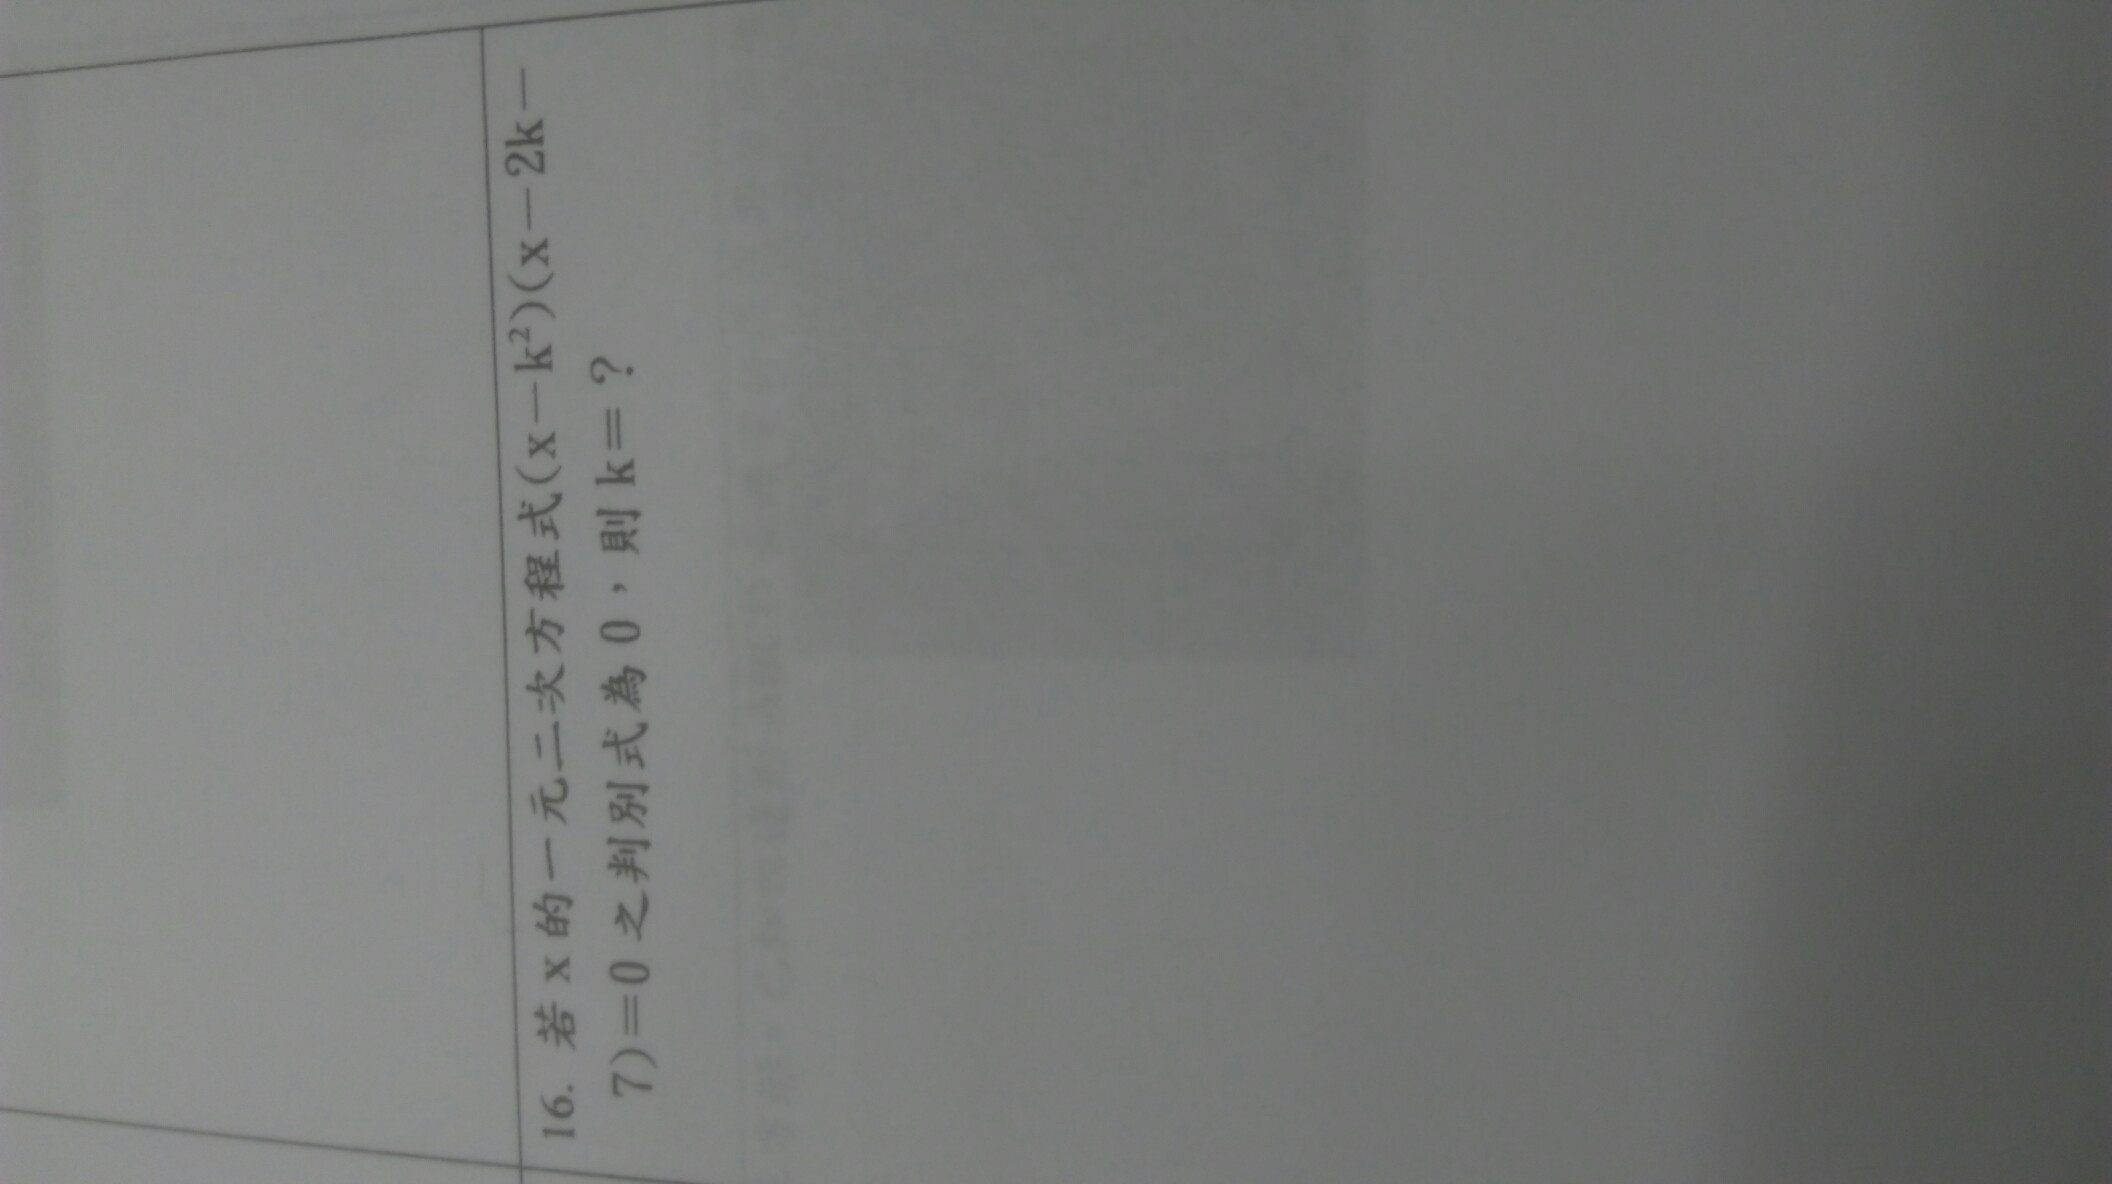 16. 若 x 的一元二次方程式(x－k²)(x－2k－
7)=0 之判別式為 0，則 k=？